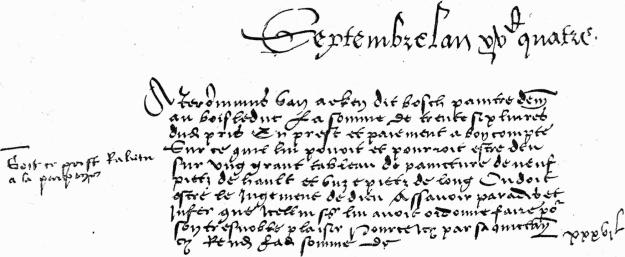 Septembre lan xvc quatre.
A Jeronimus van aeken dit bosch paintre demt
au boisleduc La somme de trente six livres
dudit pris En prest et paiement a bon compte
Soit ce prest Rabatu
Sur ce quil lui povoit et pourroit estre deu
a la parpaye
sur ung grant tableau de paincture de neuf
pietz de hault et unze pietz de long Ou doit
estre le Jugement de dieu Assavoir paradis et
Infer que Icelui sr lui avoit ordonne faire por
son tresnoble plaisir Pour ce Icy par sa quictance
cy Rendue Lad somme de xxxvi l